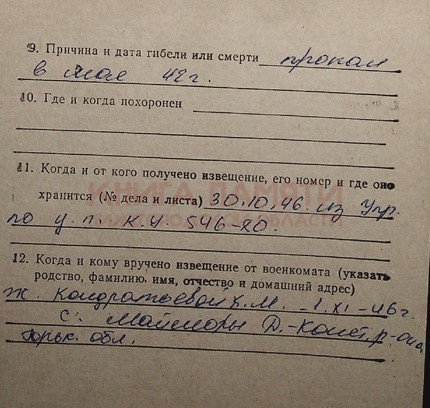 9. Причина и дата гибели или смерти пропал
в мае 42 г.
10. Где и когда похоронен
11. Когда и от кого получено извещение, его номер и где оно
хранится (№ дела и листа) 30.10.46. из Упр.
по у. п. к. и. 546-20.
КНИГА ПАМЯТИ
ОБЛАСТИ
12. Когда и кому вручено извещение от военкомата (указать
родство, фамилию, имя, отчество и домашний адрес)
ж. Кондратьевой К. М. – 1. XI – 46 г.
с. Д.-Конст. р-на,
Горьк. обл.